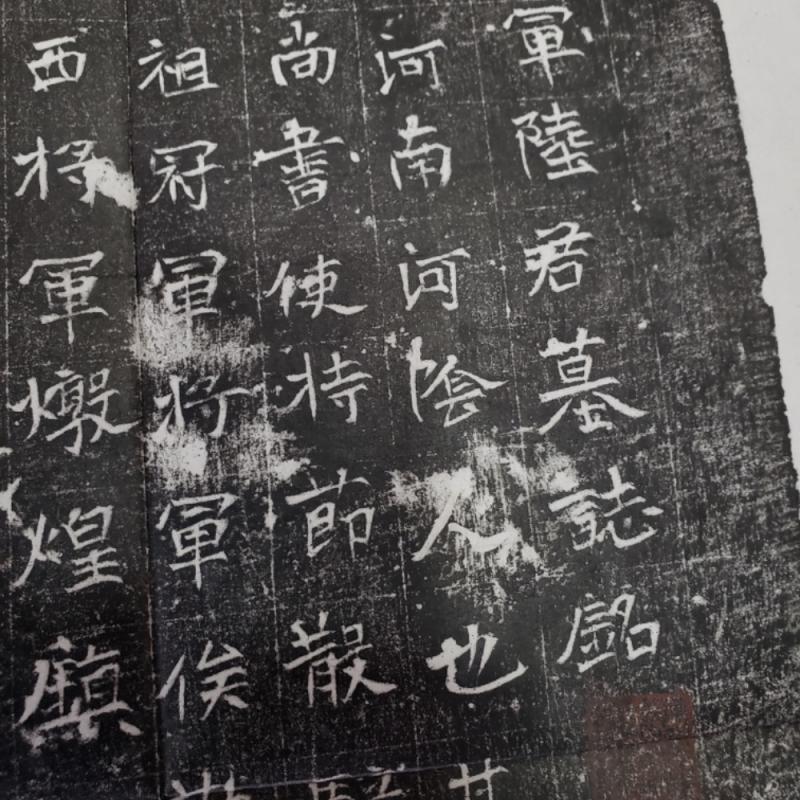 軍陸君墓誌銘
河南河陰人也其
尚書使持節散騎
祖冠軍将軍俟
西将軍燉煌鎮